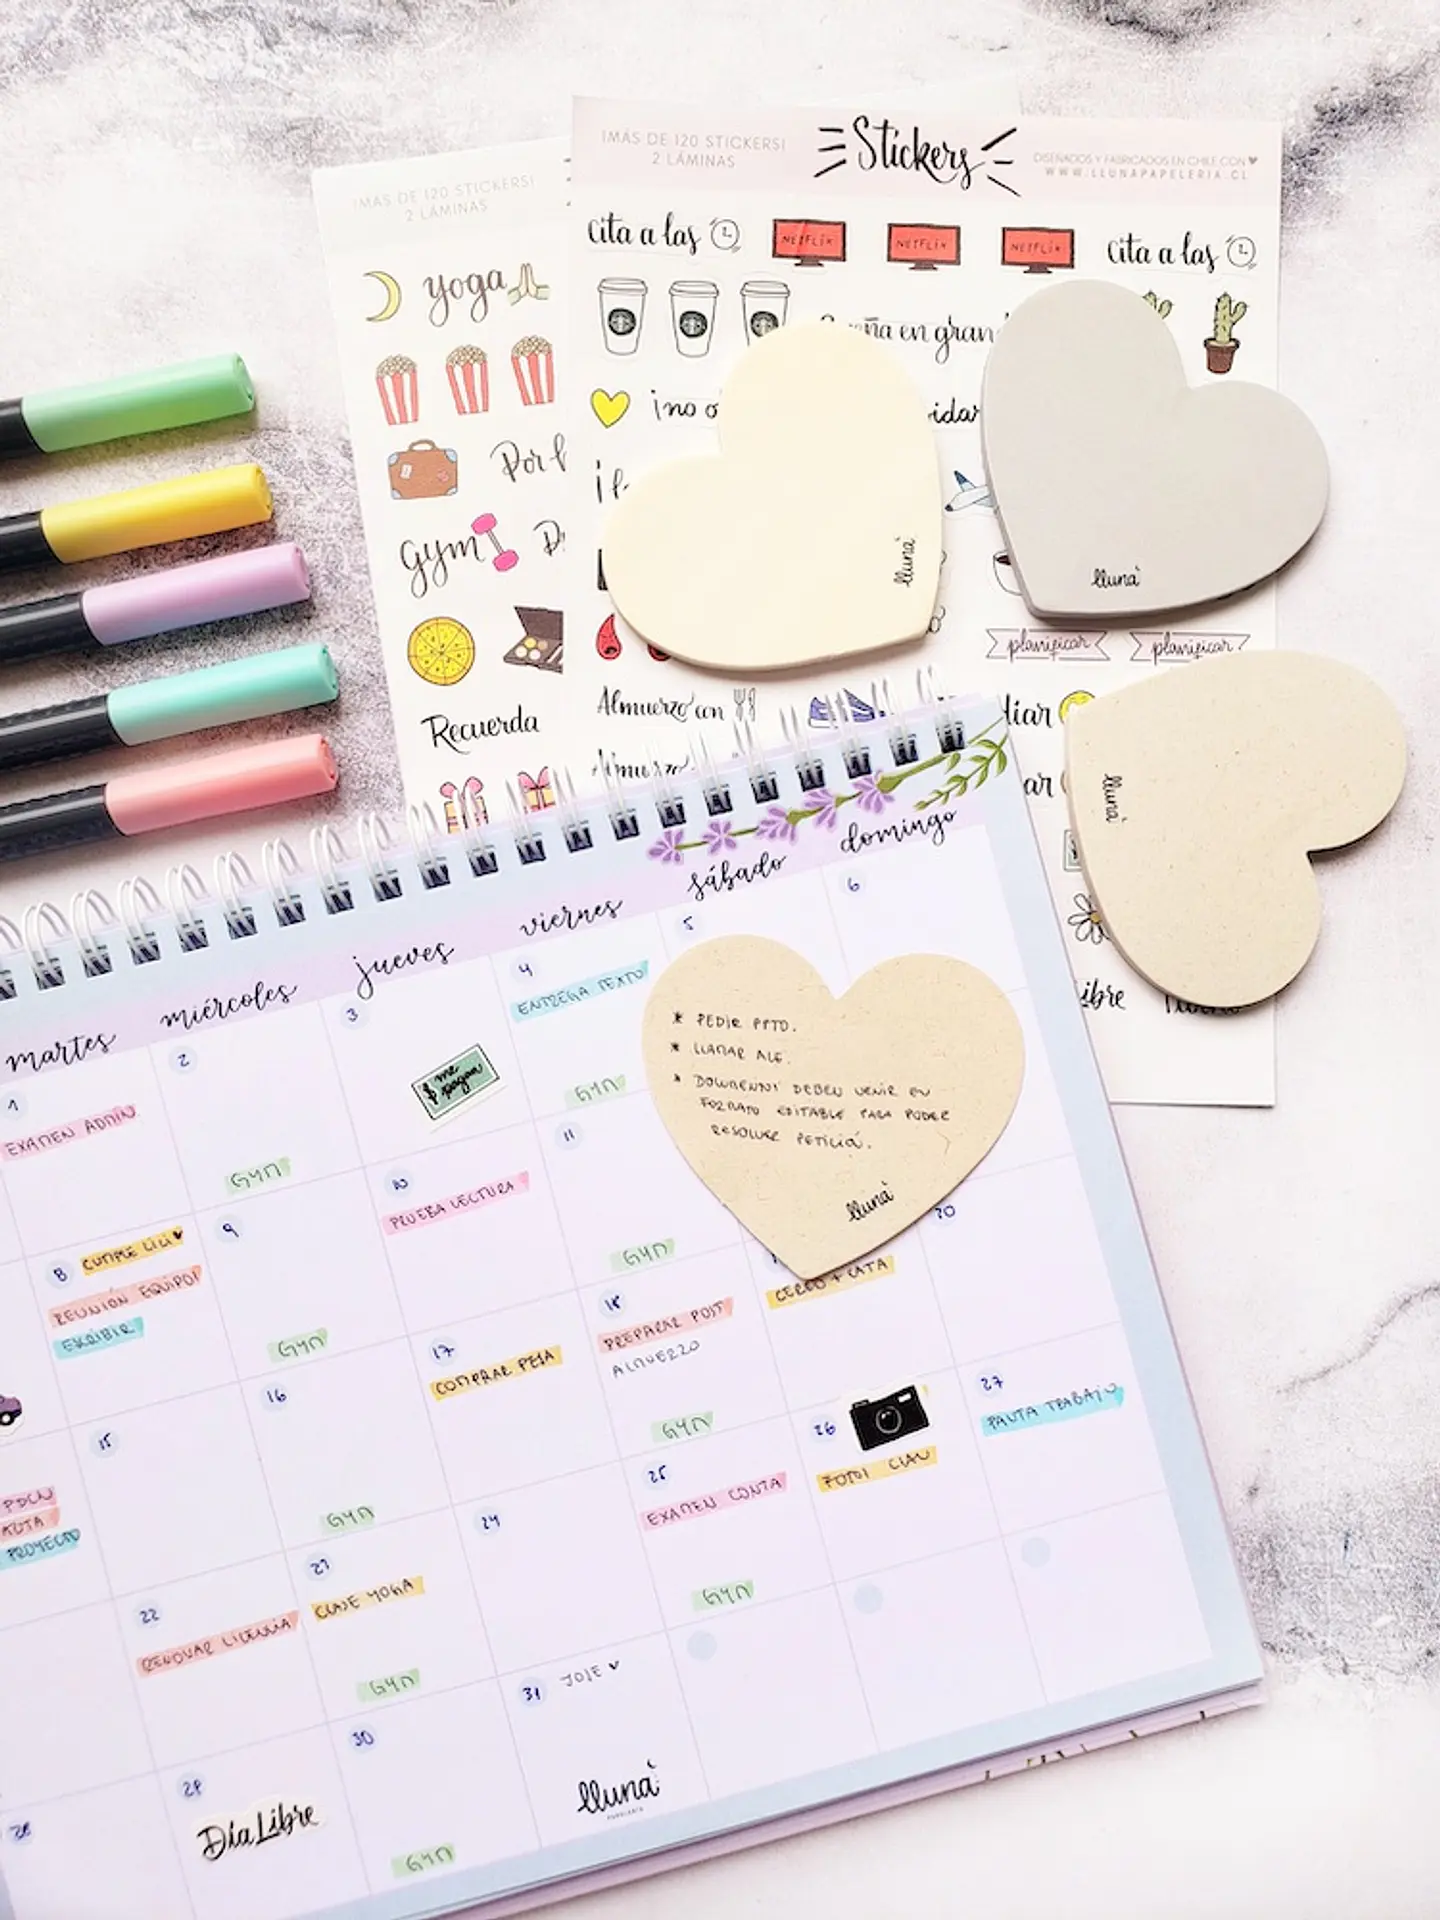 ¡MÁS DE 120 STICKERS!
2 LÁMINAS
¡MÁS DE 120 STICKERS!
2 LÁMINAS
Stickers
DISEÑADOS Y FABRICADOS EN CHILE CON
WWW.LLUNAPAPELERIA.CL
Cita a las
NETFLIX
NETFLIX
NETFLIX
Cita a las
yoga
en gran
¡no
Por
gym
lluna
lluna
planificar
planificar
Recuerda
Almuerzo con
lluna
martes
miércoles
jueves
viernes
sábado
domingo
1
EXAMEN ADMIN
2
GYM
3
$ me pagan
4
ENTREGA TEXTO
GYM
5
6
* PEDIR PPTO.
* LLAMAR ALE.
* DOWRENNI DEBEN VENIR EN
FORMATO EDITABLE PARA PODER
RESOLVER PETICIÓ.
lluna
8 CUMPLE LILI ♥
REUNIÓN EQUIPO!
ESCRIBIR
9
GYM
10
PRUEBA LECTURA
11
GYM
20
15
16
GYM
17
COMPRAR PESA
18
PREPARAR POST
ALMUERZO
GYM
CERRO + CATA
PROYECTO
22
RENOVAR LICENCIA
CLASE YOGA
GYM
24
25
EXAMEN CONTA
GYM
26
27
PAUTA TRABAJO
28
29
Día Libre
30
GYM
31
lluna